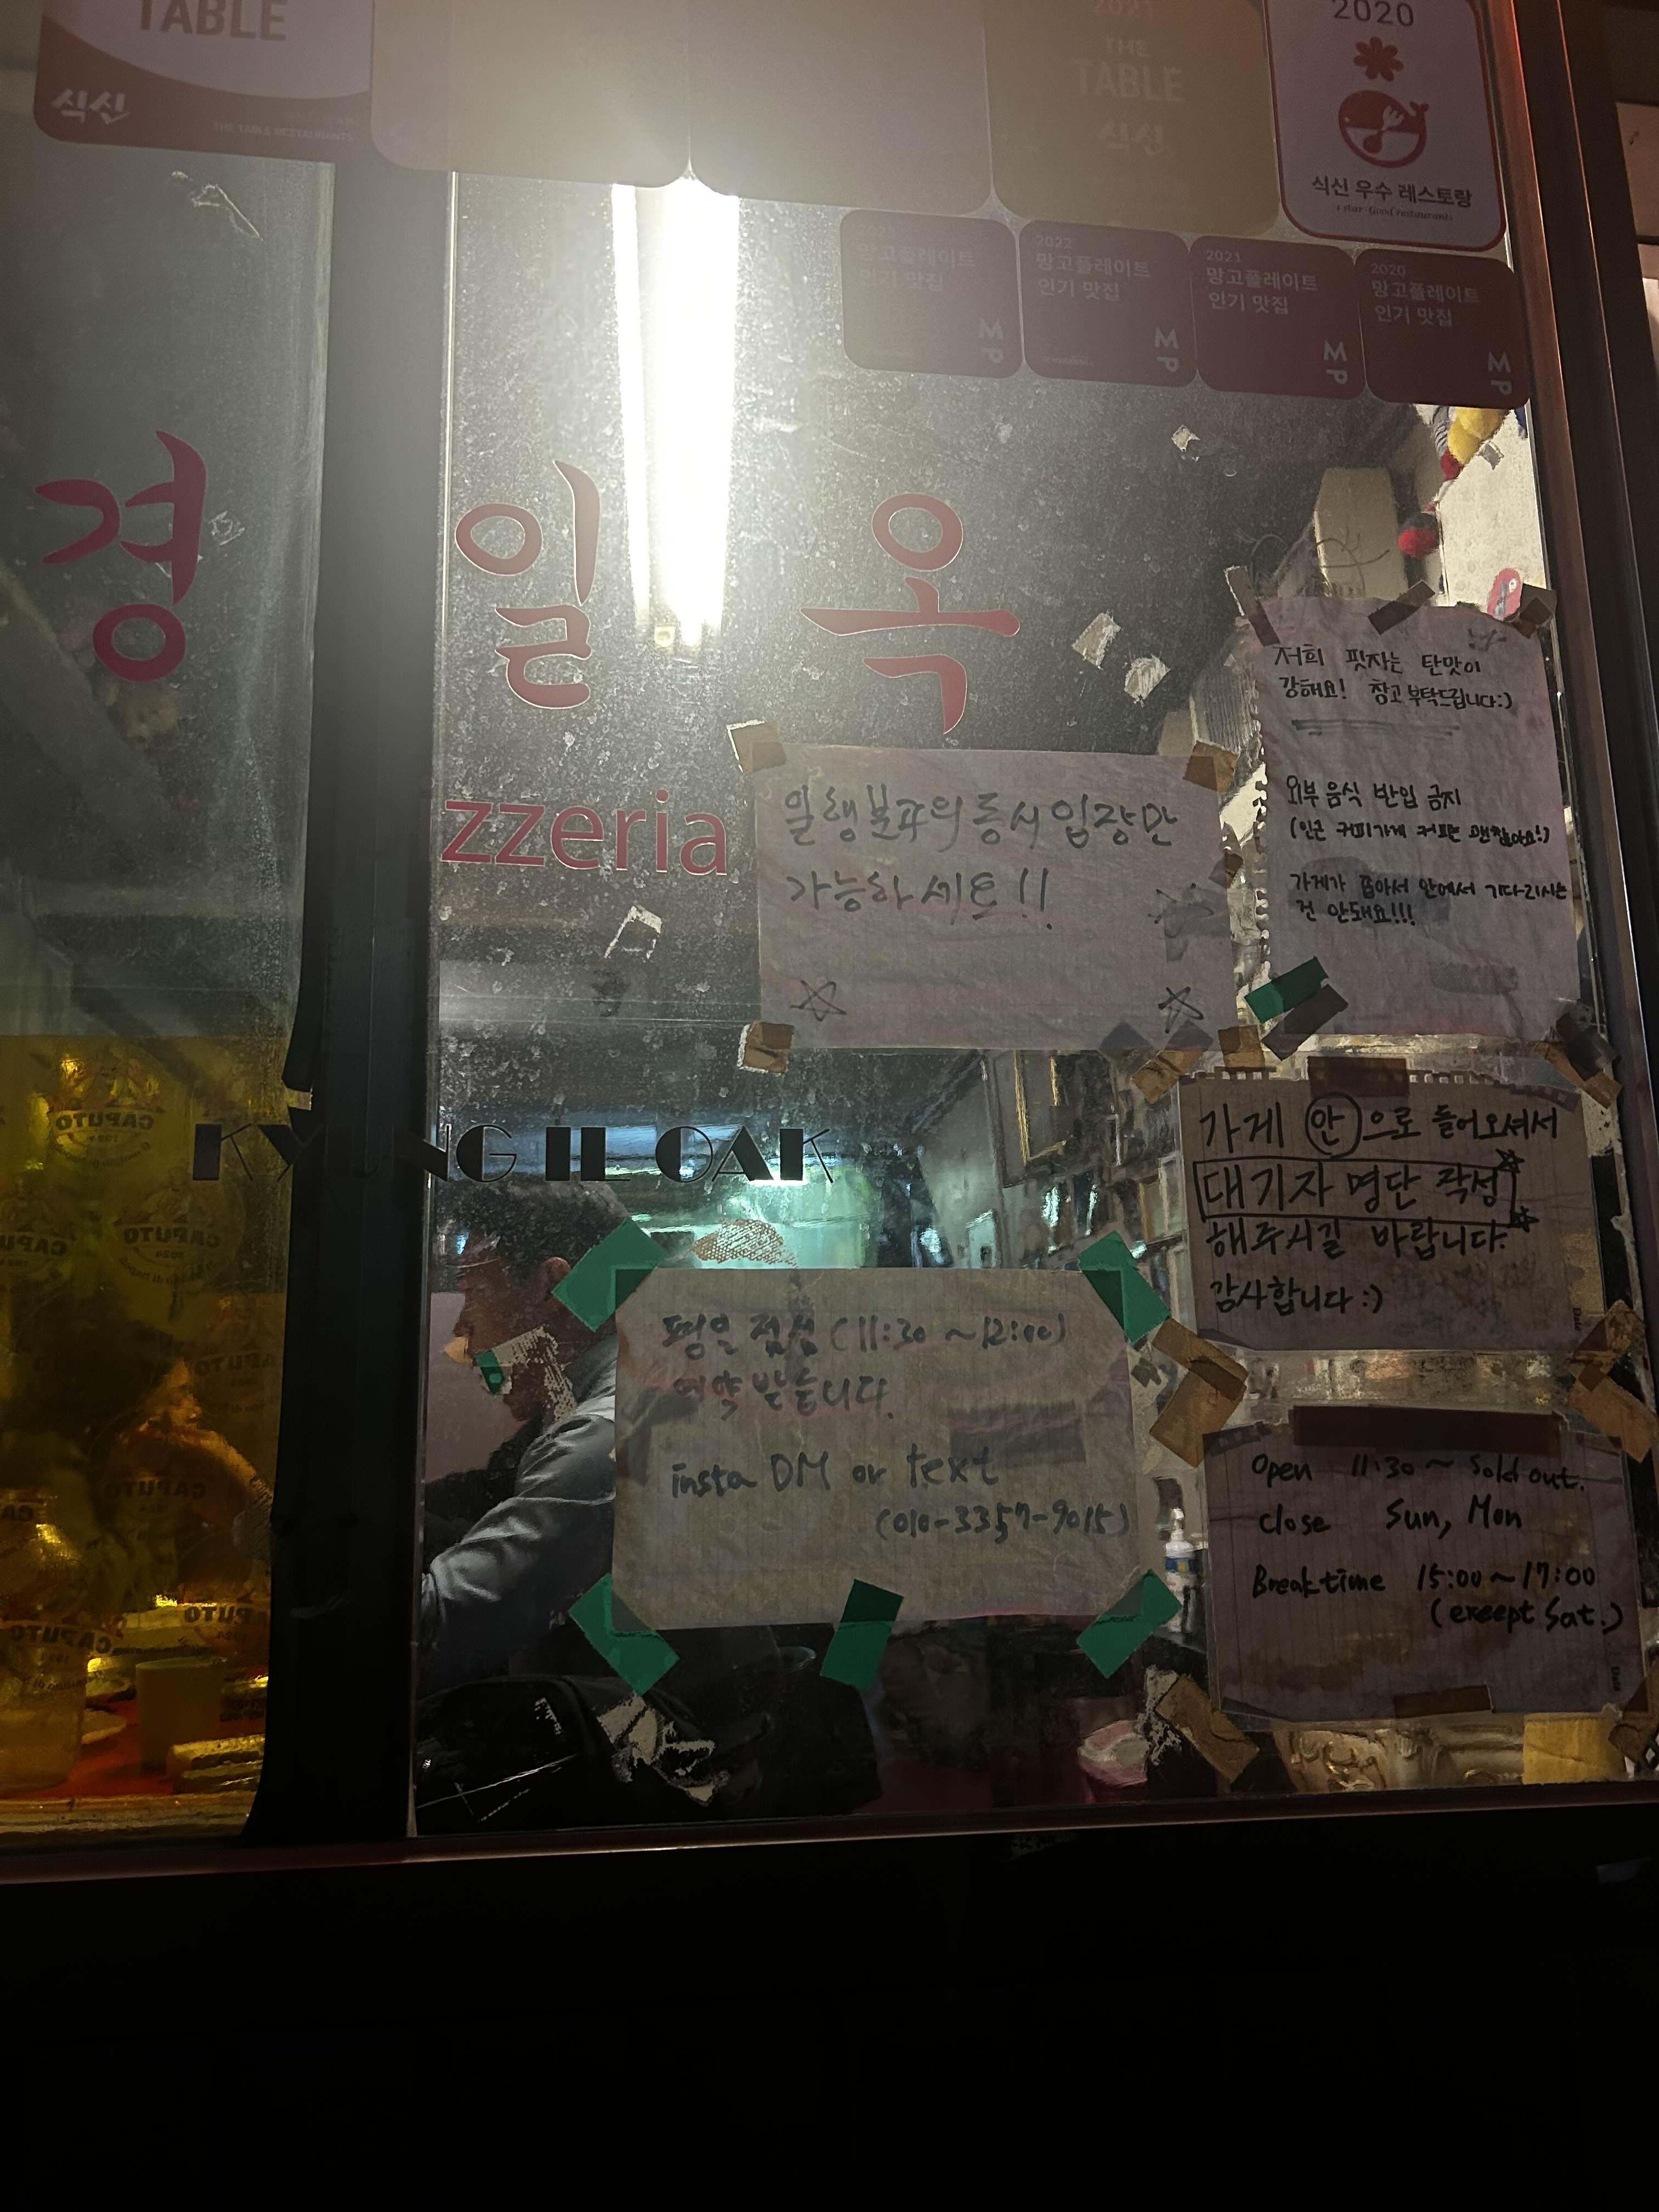 TABLE
식신
THE TABLE RESTAURANTS
2021
THE
TABLE
식신
2020
식신 우수 레스토랑
망고플레이트
인기 맛집
2022
망고플레이트
인기 맛집
MP
2021
망고플레이트
인기 맛집
MP
2020
망고플레이트
인기 맛집
MP
경일옥
zzeria
KYUNG IL OAK
일행분과의 동시입장만
가능하세트!!
저희 핏자는 탄맛이
강해요! 참고 부탁드립니다:)
외부 음식 반입 금지
(인근 커피가게 커피는 괜찮아요!)
가게가 좁아서 안에서 기다리시는
건 안돼요!!!
가게 안으로 들어오셔서
대기자 명단 작성
해주시길 바랍니다.
감사합니다 :)
평일 점심 (11:30 ~ 12:00)
예약 받습니다.
insta DM or text
(010-3357-9015)
Open 11:30 ~ Sold out.
close Sun, Mon
Break time 15:00 ~ 17:00
(except Sat.)
CAPUTO
CAPUTO
CAPUTO
CAPUTO